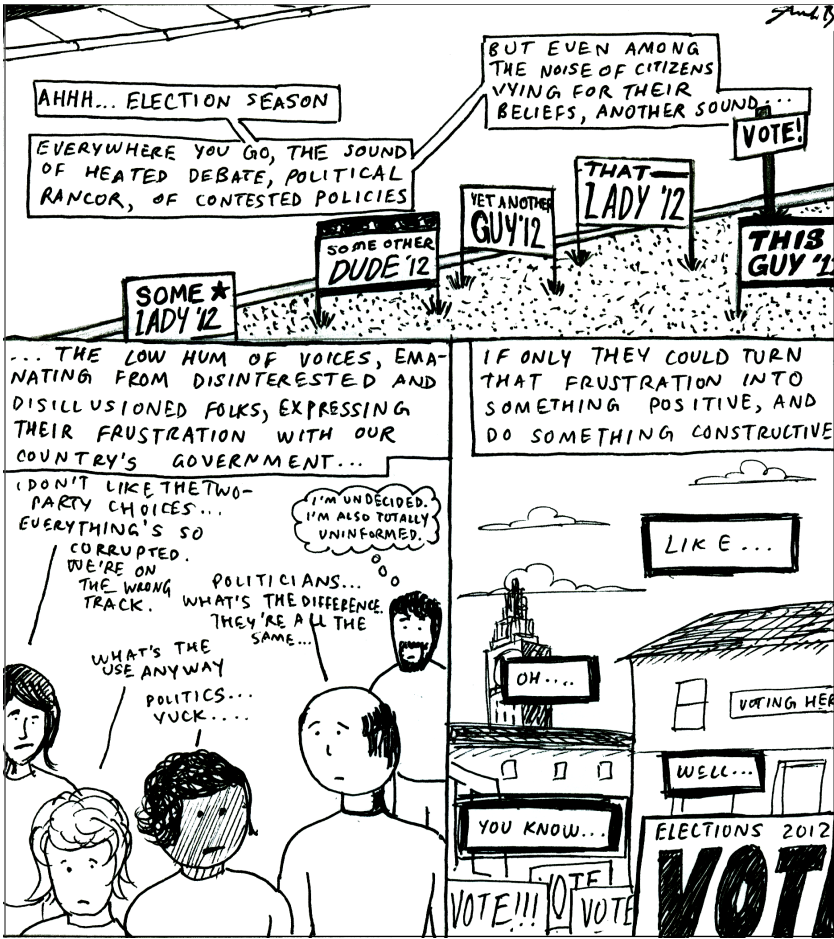 AHHH... ELECTION SEASON
EVERYWHERE YOU GO, THE SOUND
OF HEATED DEBATE, POLITICAL
RANCOR, OF CONTESTED POLICIES
BUT EVEN AMONG
THE NOISE OF CITIZENS
VYING FOR THEIR
BELIEFS, ANOTHER SOUND...
SOME
LADY '12
SOME OTHER
DUDE '12
YET ANOTHER
GUY '12
THAT
LADY '12
VOTE!
THIS
GUY '12
... THE LOW HUM OF VOICES, EMA-
NATING FROM DISINTERESTED AND
DISILLUSIONED FOLKS, EXPRESSING
THEIR FRUSTRATION WITH OUR
COUNTRY'S GOVERNMENT...
I DON'T LIKE THE TWO-
PARTY CHOICES...
EVERYTHING'S SO
CORRUPTED.
WE'RE ON
THE WRONG
TRACK.
WHAT'S THE
USE ANYWAY
POLITICS...
YUCK.....
POLITICIANS...
WHAT'S THE DIFFERENCE.
THEY'RE ALL THE
SAME...
I'M UNDECIDED.
I'M ALSO TOTALLY
UNINFORMED.
IF ONLY THEY COULD TURN
THAT FRUSTRATION INTO
SOMETHING POSITIVE, AND
DO SOMETHING CONSTRUCTIVE
LIKE...
OH....
WELL...
YOU KNOW...
VOTING HER
ELECTIONS 2012
VOT
VOTE!!!
VOTE
VOTE